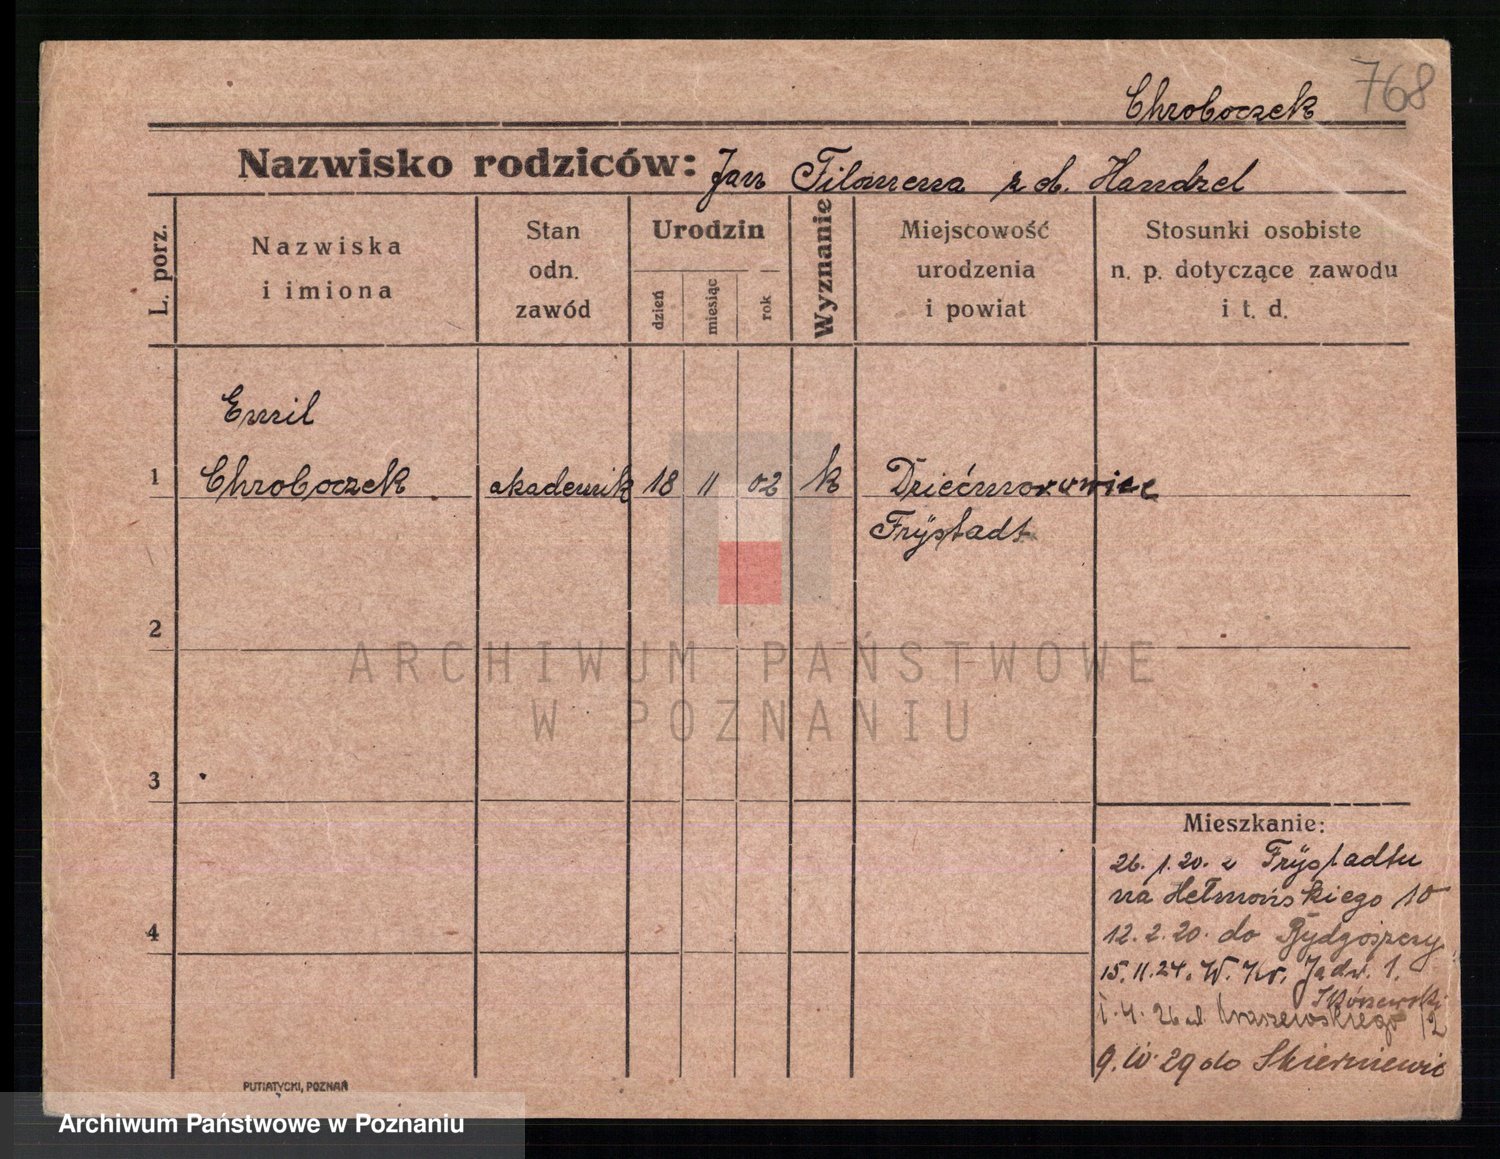 768
Chroboczek
Nazwisko rodziców: Jan Filomena z d. Handzel
L. porz.
Nazwiska
i imiona
Stan
odn.
zawód
Urodzin
dzień
miesiąc
rok
Wyznanie
Miejscowość
urodzenia
i powiat
Stosunki osobiste
n. p. dotyczące zawodu
i t. d.
Emil
1 Chroboczek akademik 18 11 02 k Dziećmorowice
Frÿstadt
2
ARCHIWUM PAŃSTWOWE
W POZNANIU
3
Mieszkanie:
26. 1. 20. z Frÿstadtu
na Hełmońskiego 10
4
12. 2. 20. do Bydgoszczy
15. 11. 24. W. Jadw. 1.
4. 26 Kraszewskiego 12
9. IV. 29 do Skierniewic
PUTIATYCKI, POZNAŃ
Archiwum Państwowe w Poznaniu